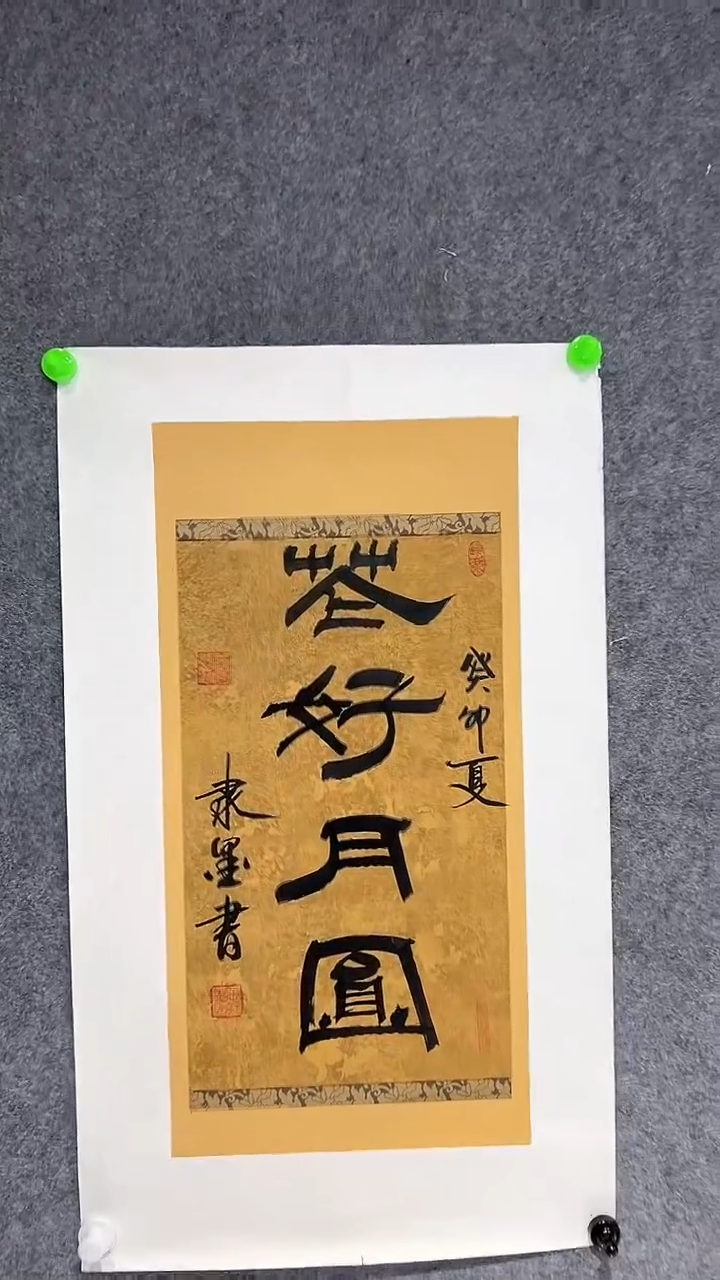 癸卯夏
花好月圓
隶墨書